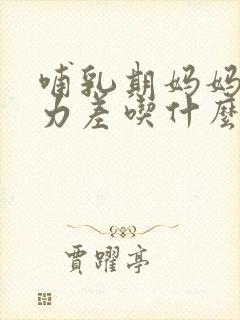 哺乳期妈妈
力差喫什麼
賈躍亭